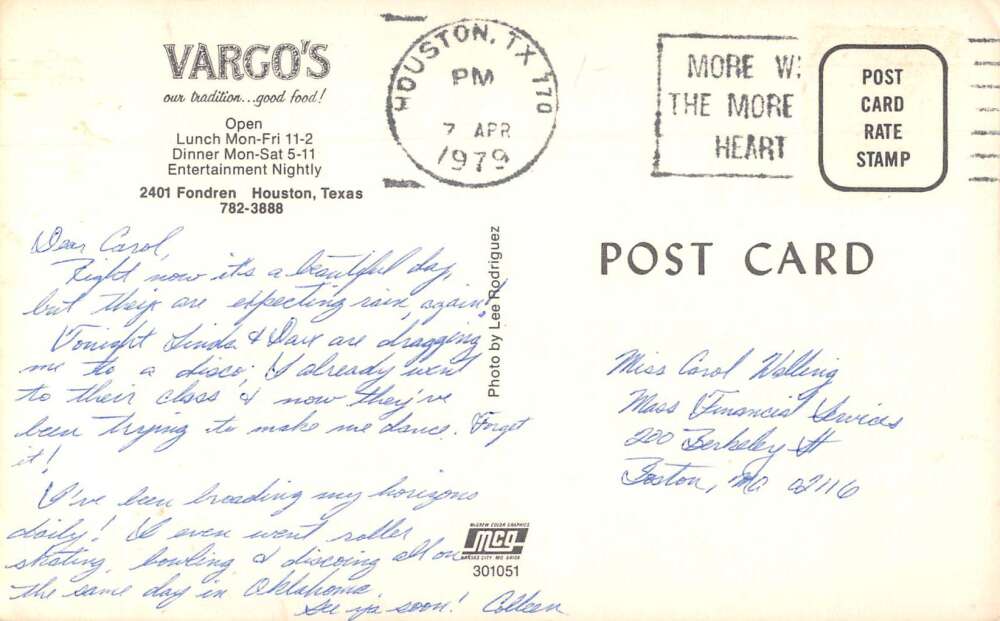 VARGO'S
our tradition...good food!
Open
Lunch Mon-Fri 11-2
Dinner Mon-Sat 5-11
Entertainment Nightly
2401 Fondren Houston, Texas
782-3888
HOUSTON, TX 770
PM
7 APR
1979
MORE W
THE MORE
HEART
POST
CARD
RATE
STAMP
Dear Carol,
Right now it's a beautiful day,
but they are expecting rain, again!
Tonight Linda & Dave are dragging
me to a disco; I already went
to their class & now they've
been trying to make me dance. Forget
it!
I've been broading my horizons
daily! I even went roller
skating, bowling & discoing all on
the same day in Oklahoma.
See ya soon! Colleen
Photo by Lee Rodriguez
McGREW COLOR GRAPHICS
mcg
KANSAS CITY, MO. 64108
301051
POST CARD
Miss Carol Walling
Mass Financial Services
200 Berkeley St
Boston, Ma 02116